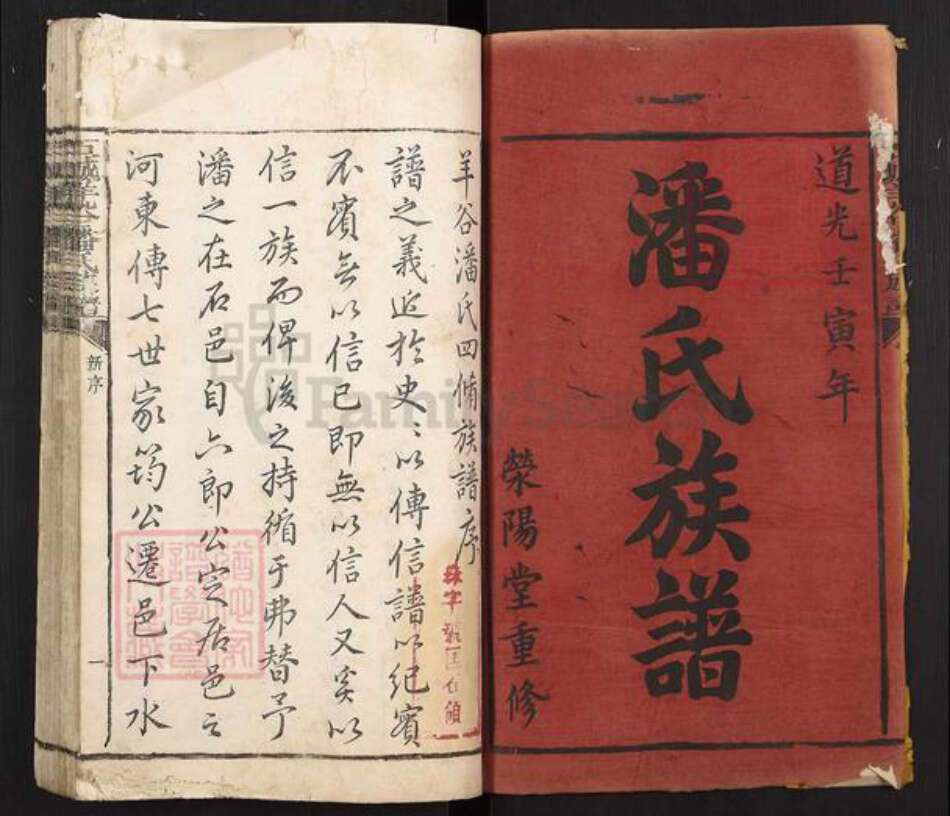 道光壬寅年
潘氏族譜
滎陽堂重修
羊谷潘氏四脩族譜序
譜之義近於史〻以傳信譜以紀實
不實無以信已即無以信人又奚以
信一族而俾後之持循于弗替予
潘之在石邑自六郎公定居邑之
河東傳七世家筠公遷邑下水
新序
一
石城羊谷潘氏族譜
FamilySearch